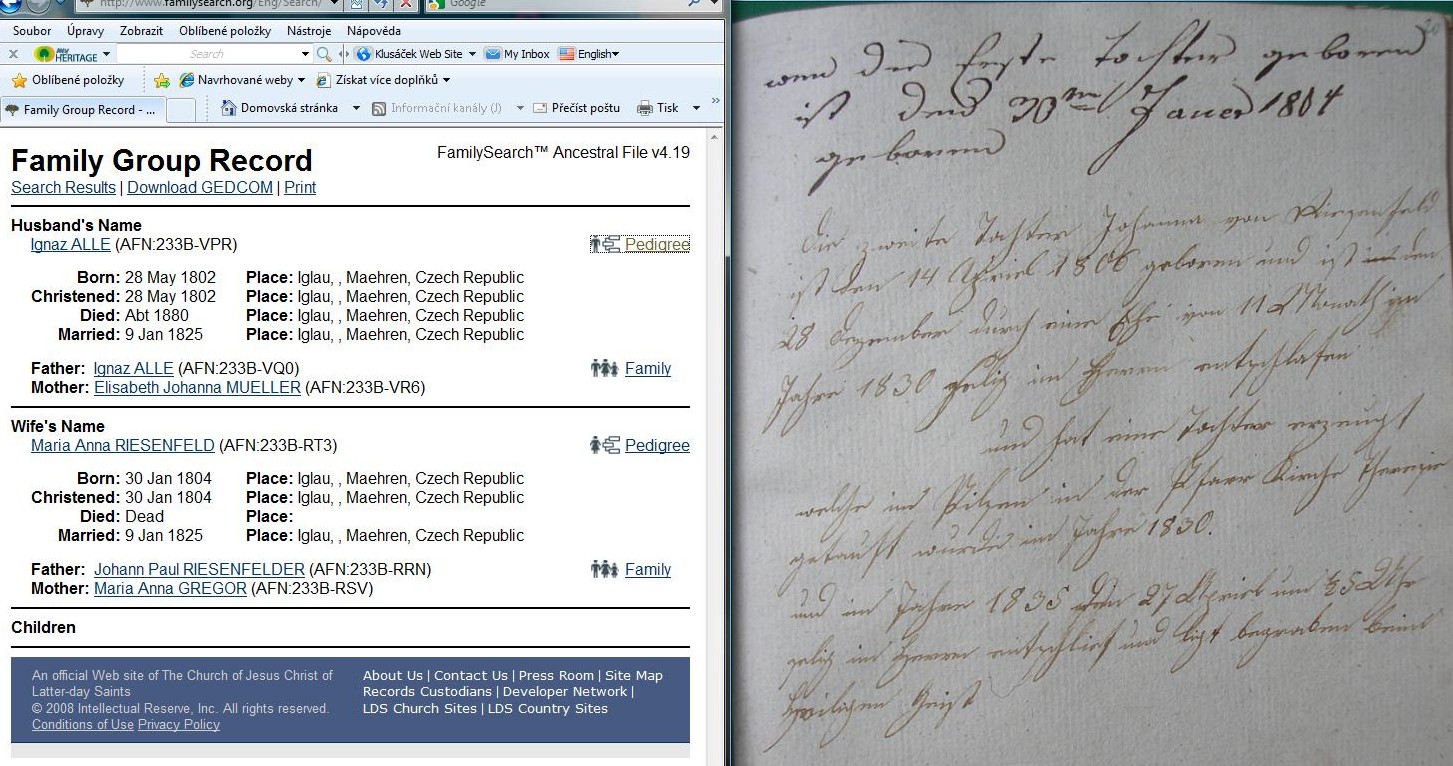 http://www.familysearch.org/Eng/Search/
Google
Soubor Úpravy Zobrazit Oblíbené položky Nástroje Nápověda
x MY HERITAGE Search Klusáček Web Site My Inbox English
Oblíbené položky Navrhované weby Získat více doplňků
Family Group Record - ... Domovská stránka Informační kanály (J) Přečíst poštu Tisk »
Family Group Record
FamilySearch™ Ancestral File v4.19
Search Results | Download GEDCOM | Print
Husband's Name
Ignaz ALLE (AFN:233B-VPR) Pedigree
Born: 28 May 1802 Place: Iglau, , Maehren, Czech Republic
Christened: 28 May 1802 Place: Iglau, , Maehren, Czech Republic
Died: Abt 1880 Place: Iglau, , Maehren, Czech Republic
Married: 9 Jan 1825 Place: Iglau, , Maehren, Czech Republic
Father: Ignaz ALLE (AFN:233B-VQ0) Family
Mother: Elisabeth Johanna MUELLER (AFN:233B-VR6)
Wife's Name
Maria Anna RIESENFELD (AFN:233B-RT3) Pedigree
Born: 30 Jan 1804 Place: Iglau, , Maehren, Czech Republic
Christened: 30 Jan 1804 Place: Iglau, , Maehren, Czech Republic
Died: Dead Place:
Married: 9 Jan 1825 Place: Iglau, , Maehren, Czech Republic
Father: Johann Paul RIESENFELDER (AFN:233B-RRN) Family
Mother: Maria Anna GREGOR (AFN:233B-RSV)
Children
An official Web site of The Church of Jesus Christ of
Latter-day Saints
© 2008 Intellectual Reserve, Inc. All rights reserved.
Conditions of Use Privacy Policy
About Us | Contact Us | Press Room | Site Map
Records Custodians | Developer Network |
LDS Church Sites | LDS Country Sites
die Erste tochter geboren
ist den 30ten Jauer 1804
geboren
die zweite Tochter Johanna von Riesenfeld
ist den 14 Apriel 1806 geboren und ist den
28 dezember durch eine Ehe von 11 Monath im
Jahre 1830 selig im Herrn entschlafen
und hat eine Tochter erzeugt
welche in Pilsen in der Pfarr Kirche Therezie
getauft wurde im Jahre 1830.
und im Jahre 1835 den 27 Apriel um ½5 Uhr
selig im Herrn entschlief und ligt begraben beim
Heiligen Geist